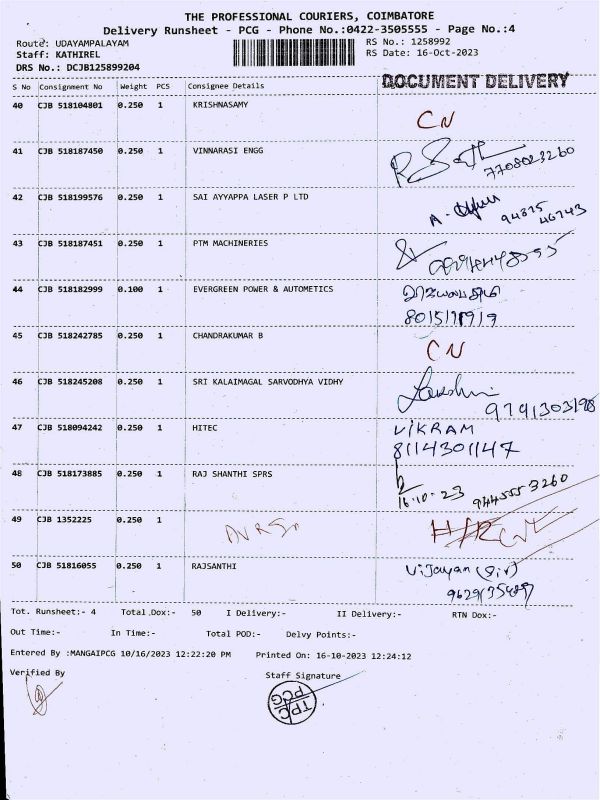 THE PROFESSIONAL COURIERS, COIMBATORE
Delivery Runsheet - PCG - Phone No.:0422-3505555 - Page No.:4
Route: UDAYAMPALAYAM RS No.: 1258992
Staff: KATHIREL RS Date: 16-Oct-2023
DRS No.: DCJB125899204
DOCUMENT DELIVERY
S No Consignment No Weight PCS Consignee Details
40 CJB 518104801 0.250 1 KRISHNASAMY
CN
41 CJB 518187450 0.250 1 VINNARASI ENGG
7708023260
42 CJB 518199576 0.250 1 SAI AYYAPPA LASER P LTD
94875
46743
43 CJB 518187451 0.250 1 PTM MACHINERIES
44 CJB 518182999 0.100 1 EVERGREEN POWER & AUTOMETICS
45 CJB 518242785 0.250 1 CHANDRAKUMAR B
CN
46 CJB 518245208 0.250 1 SRI KALAIMAGAL SARVODHYA VIDHY
9791303198
47 CJB 518094242 0.250 1 HITEC VIKRAM
8114301147
48 CJB 518173885 0.250 1 RAJ SHANTHI SPRS
16-10-23
49 CJB 1352225 0.250 1
50 CJB 51816055 0.250 1 RAJSANTHI Vijayan (Sir)
Tot. Runsheet:- 4 Total Dox:- 50 I Delivery:- II Delivery:- RTN Dox:-
Out Time:- In Time:- Total POD:- Delvy Points:-
Entered By :MANGAIPCG 10/16/2023 12:22:20 PM Printed On: 16-10-2023 12:24:12
Verified By Staff Signature
TPC
PCG